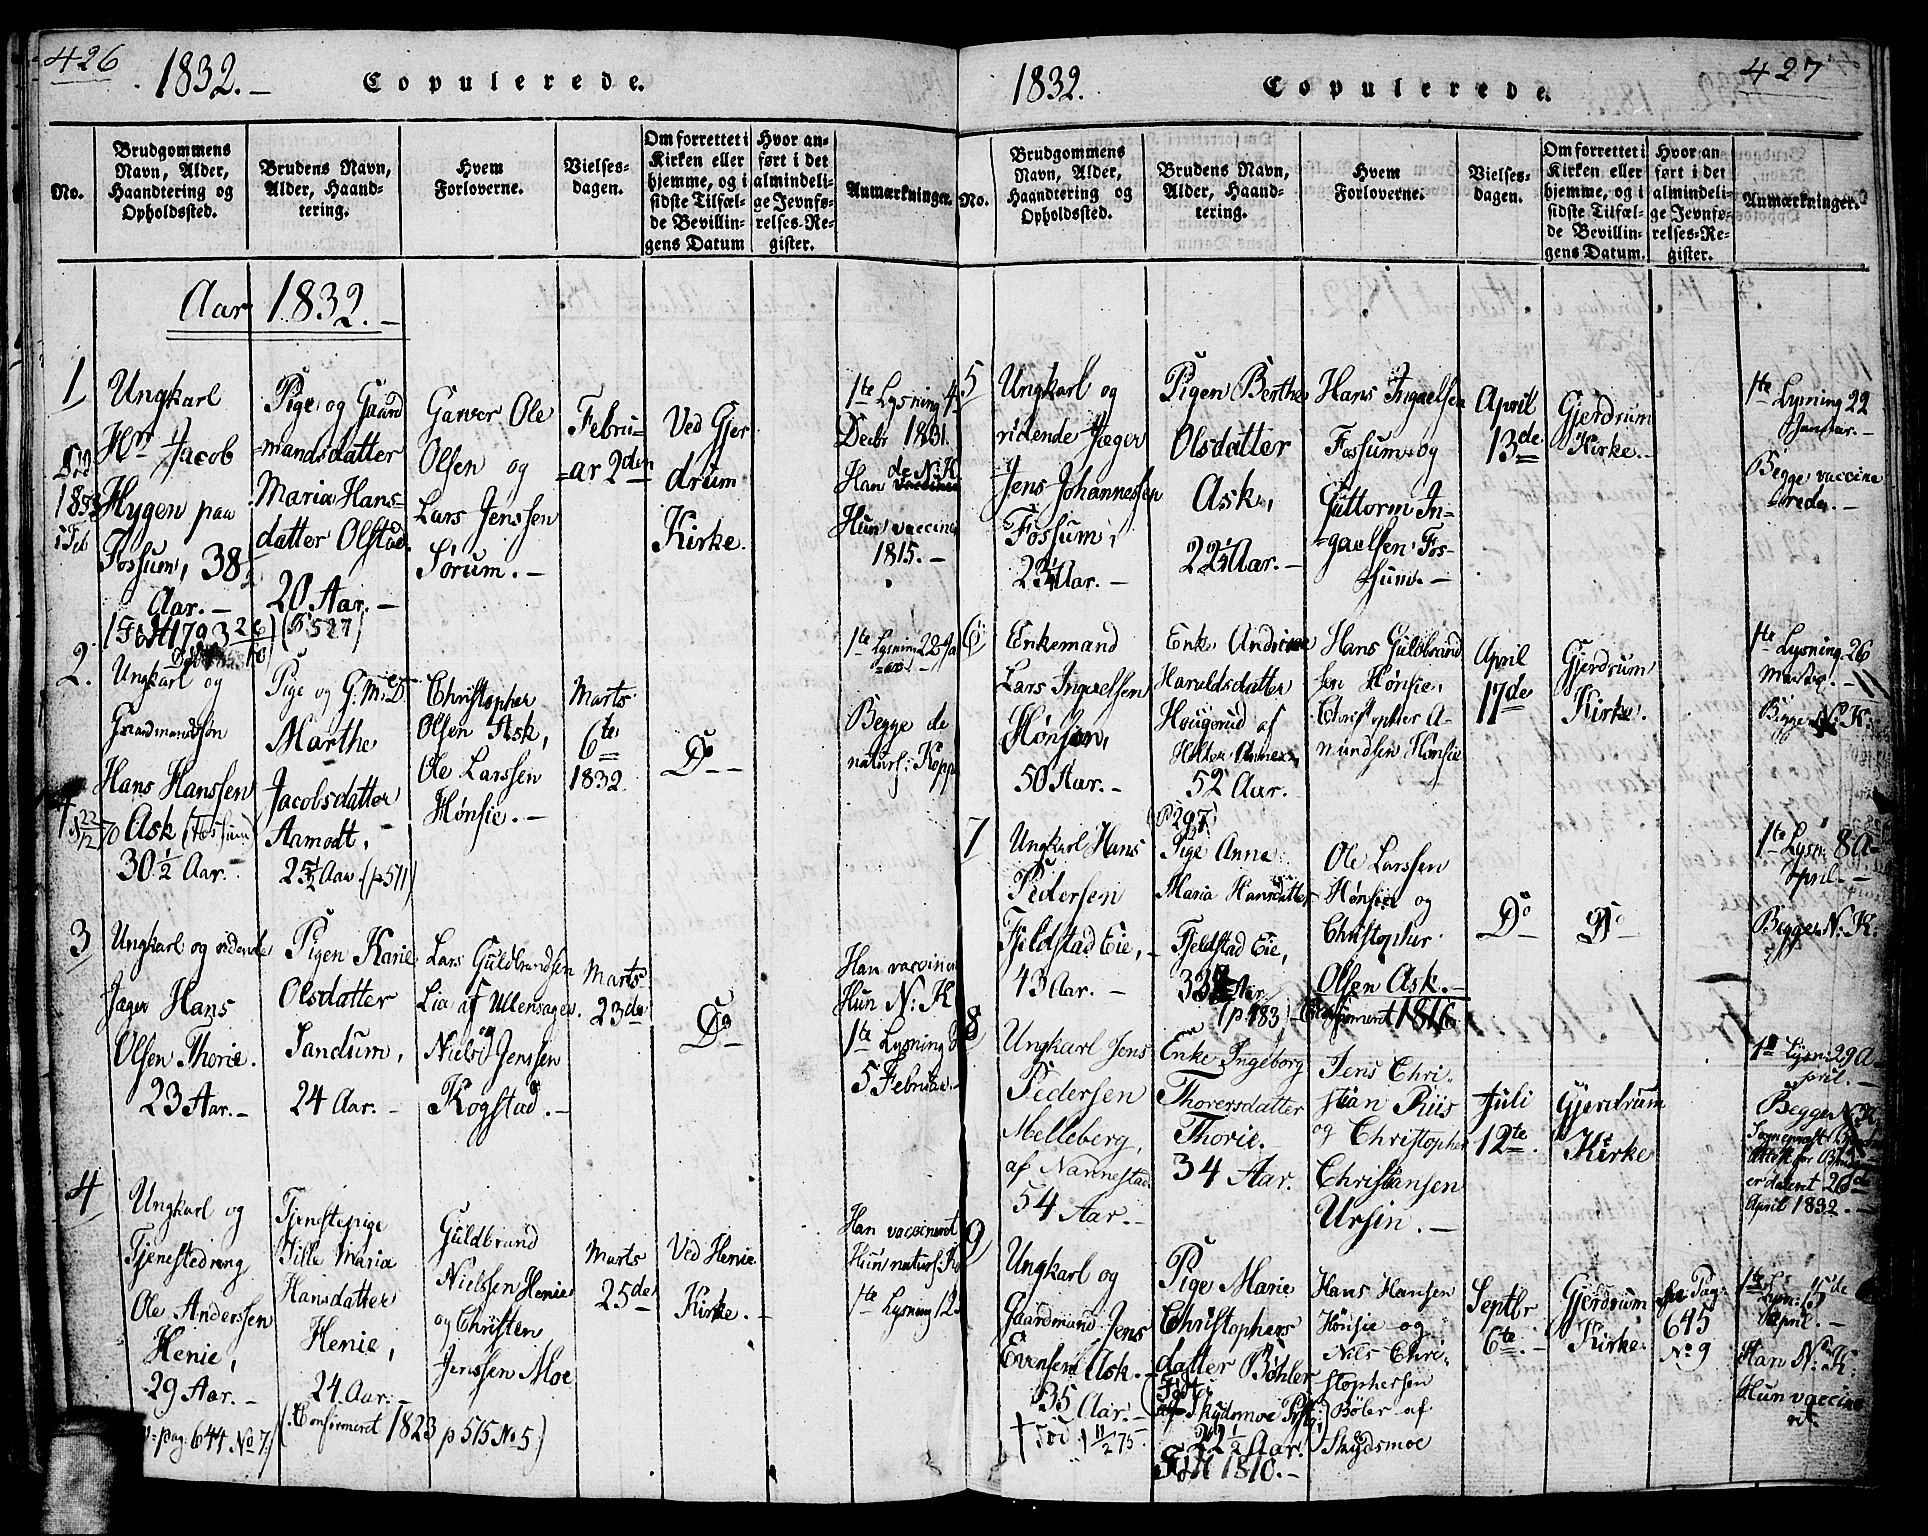 426
1832.
Copulerede.
No.
Brudgommens
Navn, Alder,
Haandtering og
Opholdssted.
Brudens Navn,
Alder, Haand-
tering.
Hvem
Forloverne.
Vielses-
dagen.
Om forrettet i
Kirken eller
hjemme, og i
sidste Tilfæl-
de Bevillin-
gens Datum
Hvor an-
ført i det
almindeli-
ge Jevnfø-
relses-Re-
gister.
Anmærkninger.
Aar 1832.
1
Ungkarl
Hr Jacob
Hygen paa
Fossum, 38½
Aar.
Pige og Gaard
mandsdatter
Maria Hans-
datter Olstad.
20 Aar.
(p 527)
Garver Ole
Olsen og
Lars Jenssen
Sørum.
Febru-
ar 2den
Ved Gjer
drum
Kirke.
1te Lysning 4
Decbr 1831.
Han de N: K
Hun vaccine
1815.
2.
Ungkarl og
Gaardmandssøn
Hans Hanssen
Ask (Fossum)
30½ Aar.
Pige og G. M: D.
Marthe
Jacobsdatter
Aamodt,
25½ Aar. (p 511)
Christopher
Olsen Ask,
Ole Larssen
Hønsie.
Marts
6te
1832.
Do
1te Lysning 22 Ja
nar.
Begge de
naturl: Kopp
3
Ungkarl og ridende
Jæger Hans
Olsen Thorie.
23 Aar.
Pigen Karie
Olsdatter
Sandum,
24 Aar.
Lars Guldbrandsen
Lia af Ullensager.
og
Niels Jenssen
Kogstad.
Marts
23de
Do
Han vaccine
Hun N: K
1te Lysning
5 Februar
4
Ungkarl og
Tjenestedreng
Ole Andersen
Henie,
29 Aar.
pag: 644 No 7.
Tjenestepige
Tille Maria
Hansdatter
Henie,
24 Aar.
(Confirmeret 1823 p 515 No 5.)
Guldbrand
Nielsen Henie
og Christen
Jenssen Moe
Marts
25de
Ved Henie
Kirke.
Han vaccineret
Hun naturl: Ko
1te Lysning 12
427
1832.
Copulerede.
No.
Brudgommens
Navn, Alder,
Haandtering og
Opholdssted.
Brudens Navn,
Alder, Haand-
tering.
Hvem
Forloverne.
Vielses-
dagen.
Om forrettet i
Kirken eller
hjemme, og i
sidste Tilfæl-
de Bevillin-
gens Datum.
Hvor an
ført i det
almindeli-
ge Jevnfø-
relses-Re-
gister.
Anmærkninger.
5
Ungkarl og
ridende Jæger
Jens Johannessen
Fossum,
Aar.
Pigen Berthe
Olsdatter
Ask,
Aar.
Hans Ingaelsen
Fossum og
Guttorm In-
gaelsen Fos-
sum.
April
13de
Gjerdrum
Kirke.
1te Lysning 22
Januar.
Begge vaccine
rede.
6
Enkemand
Lars Ingaelsen
Hønsen,
50 Aar.
Enke Andrine
Haraldsdatter
Hougerud af
Holter Annex,
52 Aar.
Hans Guldbrand
sen Hønsie,
Christopher A-
mundsen Hønsie
April
17de
Gjerdrum
Kirke.
1te Lysning 26
Marts.
Begge N: K:
7
Ungkarl Hans
Pedersen
Fjeldstad Eie,
43 Aar.
(p 297)
Pige Anna
Maria Hansdatter
Fjeldstad Eie,
Aar
(p 483) Confirmeret 1816
Ole Larssen
Hønsie og
Christopher
Olsen Ask.
Do
Do
1te Lysn: 8 A-
pril.
Begge N: K.
8
Ungkarl Jens
Pedersen
Melleberg,
af Nannestad.
54 Aar.
Enke Ingeborg
Thorersdatter
Thorie.
34 Aar.
Jens Chri-
stian Riis
og Christopher
Christiansen
Ursin.
Juli
12te
Gjerdrum
Kirke
1te Lysn: 29 A-
pril.
Begge N: K:
er dateret 26de
April 1832.
9
Ungkarl og
Gaardmand Jens
Evensen Ask.
35 Aar.
† død 11/2 75.
Pige Marie
Christophers
datter Bøhler
Født
af Skydsmoe
22½ Aar.
Født 1810.
Hans Hansen
Hønsie og
Niels Chri-
stophersen
Bøler af
Skydsmoe
Septbr
6te
Gjerdrum
Kirke.
see Pag:
645
No 9
1te
Lysn: 15de
April.
Han N: K:
Hun vaccine
ret